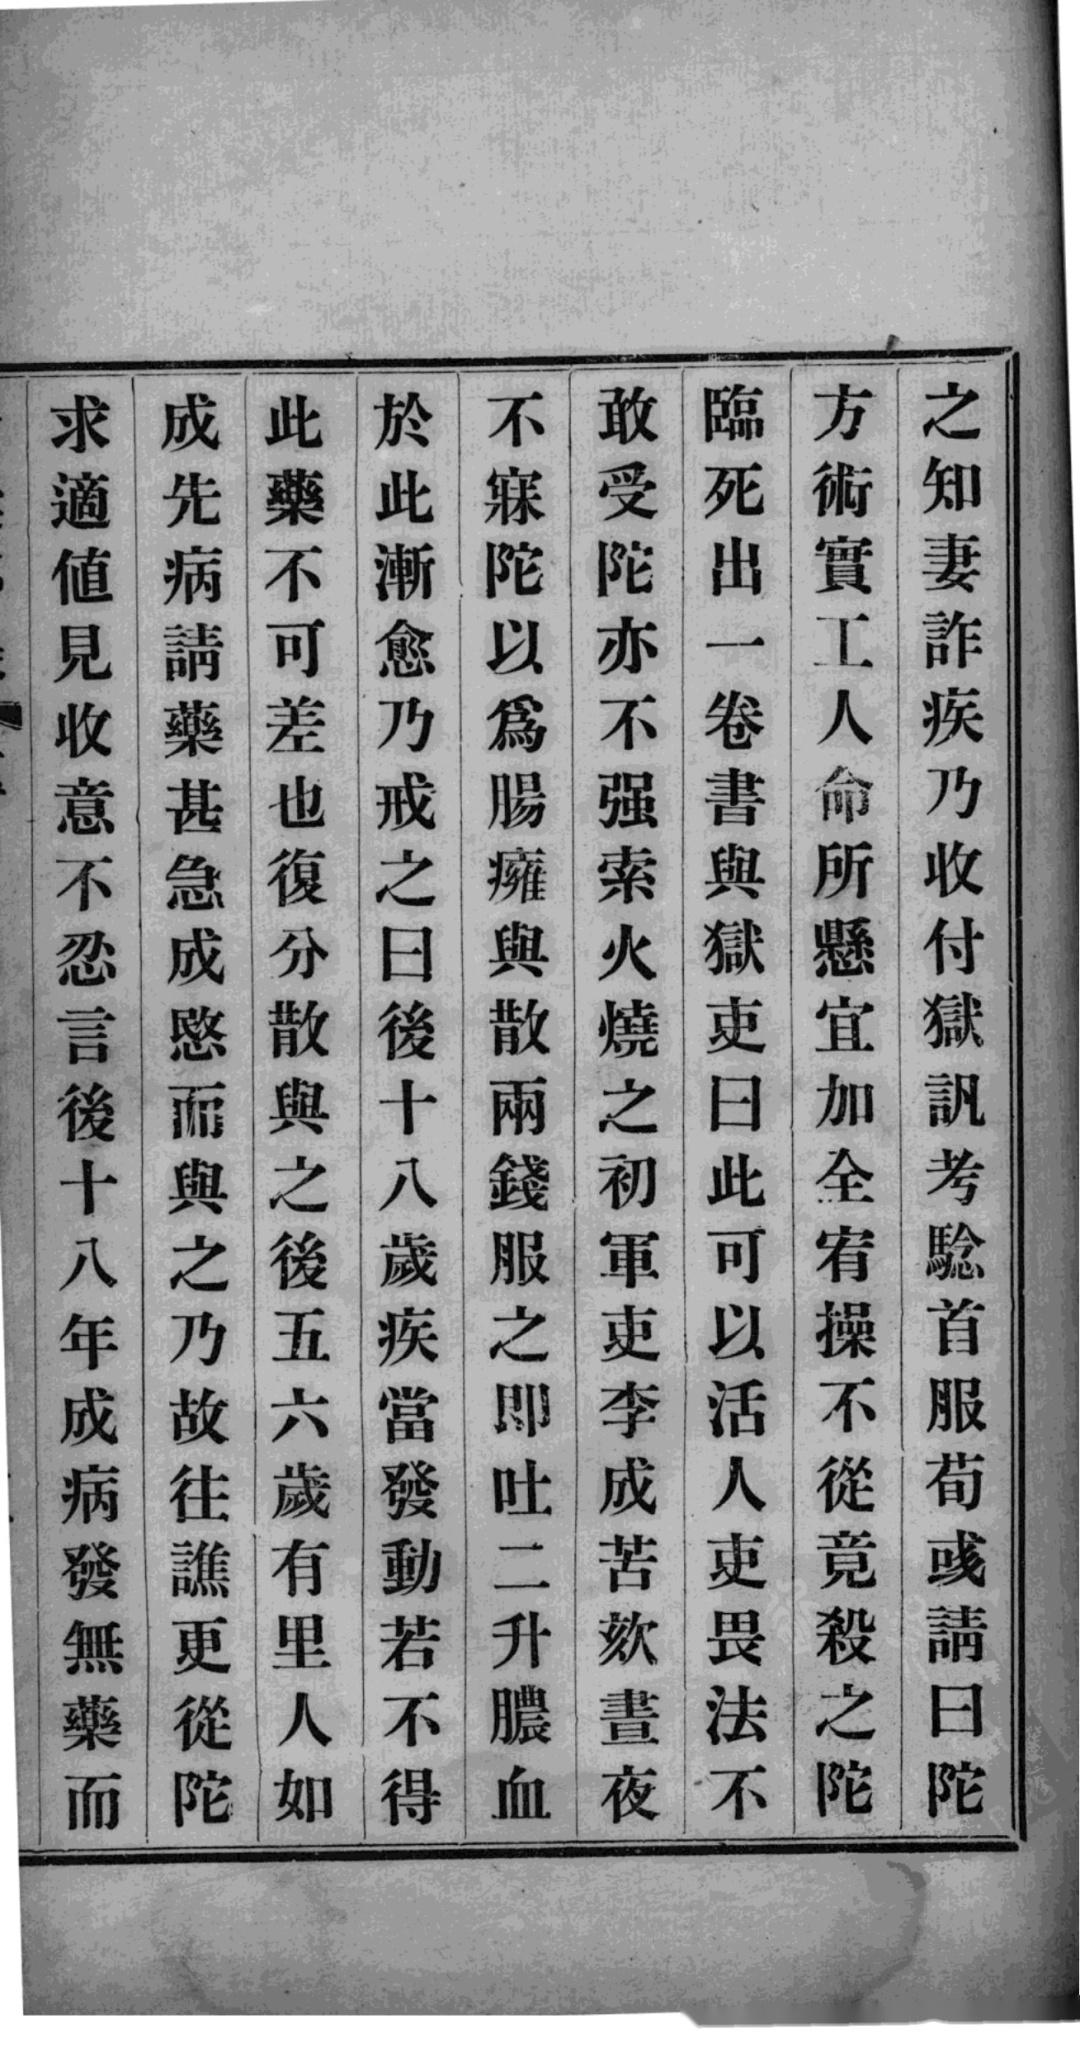 之知妻詐疾乃收付獄訊考騐首服荀彧請曰陀
方術實工人命所懸宜加全宥操不從竟殺之陀
臨死出一卷書與獄吏曰此可以活人吏畏法不
敢受陀亦不强索火燒之初軍吏李成苦欬晝夜
不寐陀以爲腸癰與散兩錢服之即吐二升膿血
於此漸愈乃戒之曰後十八歲疾當發動若不得
此藥不可差也復分散與之後五六歲有里人如
成先病請藥甚急成愍而與之乃故往譙更從陀
求適値見收意不忍言後十八年成病發無藥而